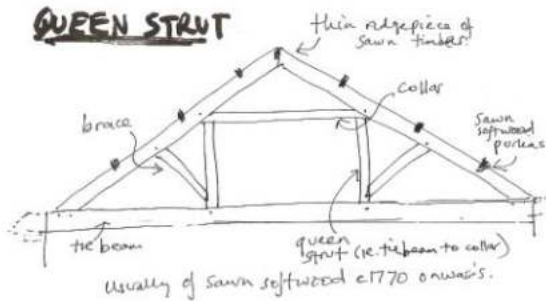 QUEEN STRUT
thin ridgepiece of
sawn timbers.
collar
brace
sawn
softwood
purlins
tie beam
queen
strut (ie. tie beam to collar)
usually of sawn softwood c1770 onwards.